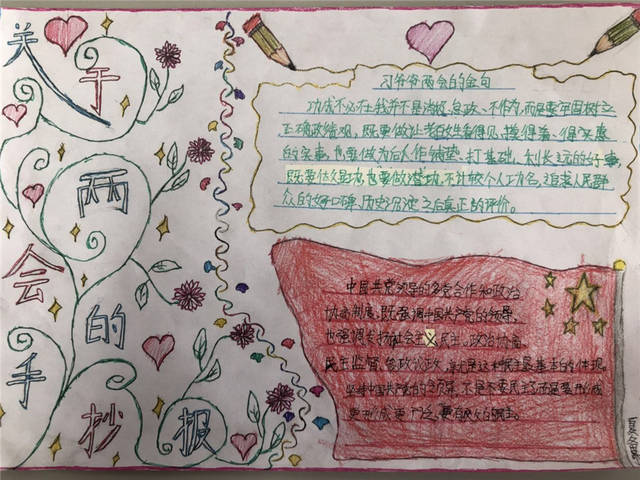 关于
两会的
手抄报
习爷爷两会的金句
功成不必在我并不是消极、怠政、不作为,而是要牢固树立
正确政绩观,既要做让老百姓看得见、摸得着、得实惠
的实事,也要做为后人作铺垫、打基础、利长远的好事,
既要做显功,也要做潜功,不计较个人功名,追求人民群
众的好口碑、历史沉淀之后真正的评价。
中国共产党领导的多党合作和政治
协商制度,既强调中国共产党的领导,
也强调发扬社会主义民主。政治协商、
民主监督、参政议政,就是这种民主最基本的体现。
坚持中国共产党的领导,不是不要民主了,而是要形成
更广泛、更有效的民主。